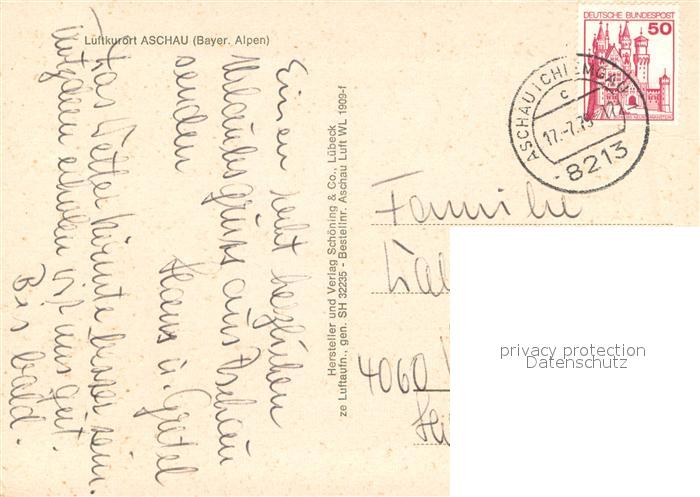 Luftkurort ASCHAU (Bayer. Alpen)
Einen recht herzlichen
Urlaubsgruß aus Aschau
senden
Hans u. Gretel
Das Wetter könnte besser sein.
trotzdem erholen wir uns gut.
Bis bald.
Hersteller und Verlag Schöning & Co., Lübeck
ze Luftaufn., gen. SH 32235 - Bestellnr. Aschau Luft WL 1909-f
DEUTSCHE BUNDESPOST
50
ASCHAU I CHIEMGAU
c
17.-7.79
8213
Familie
4060
privacy protection
Datenschutz